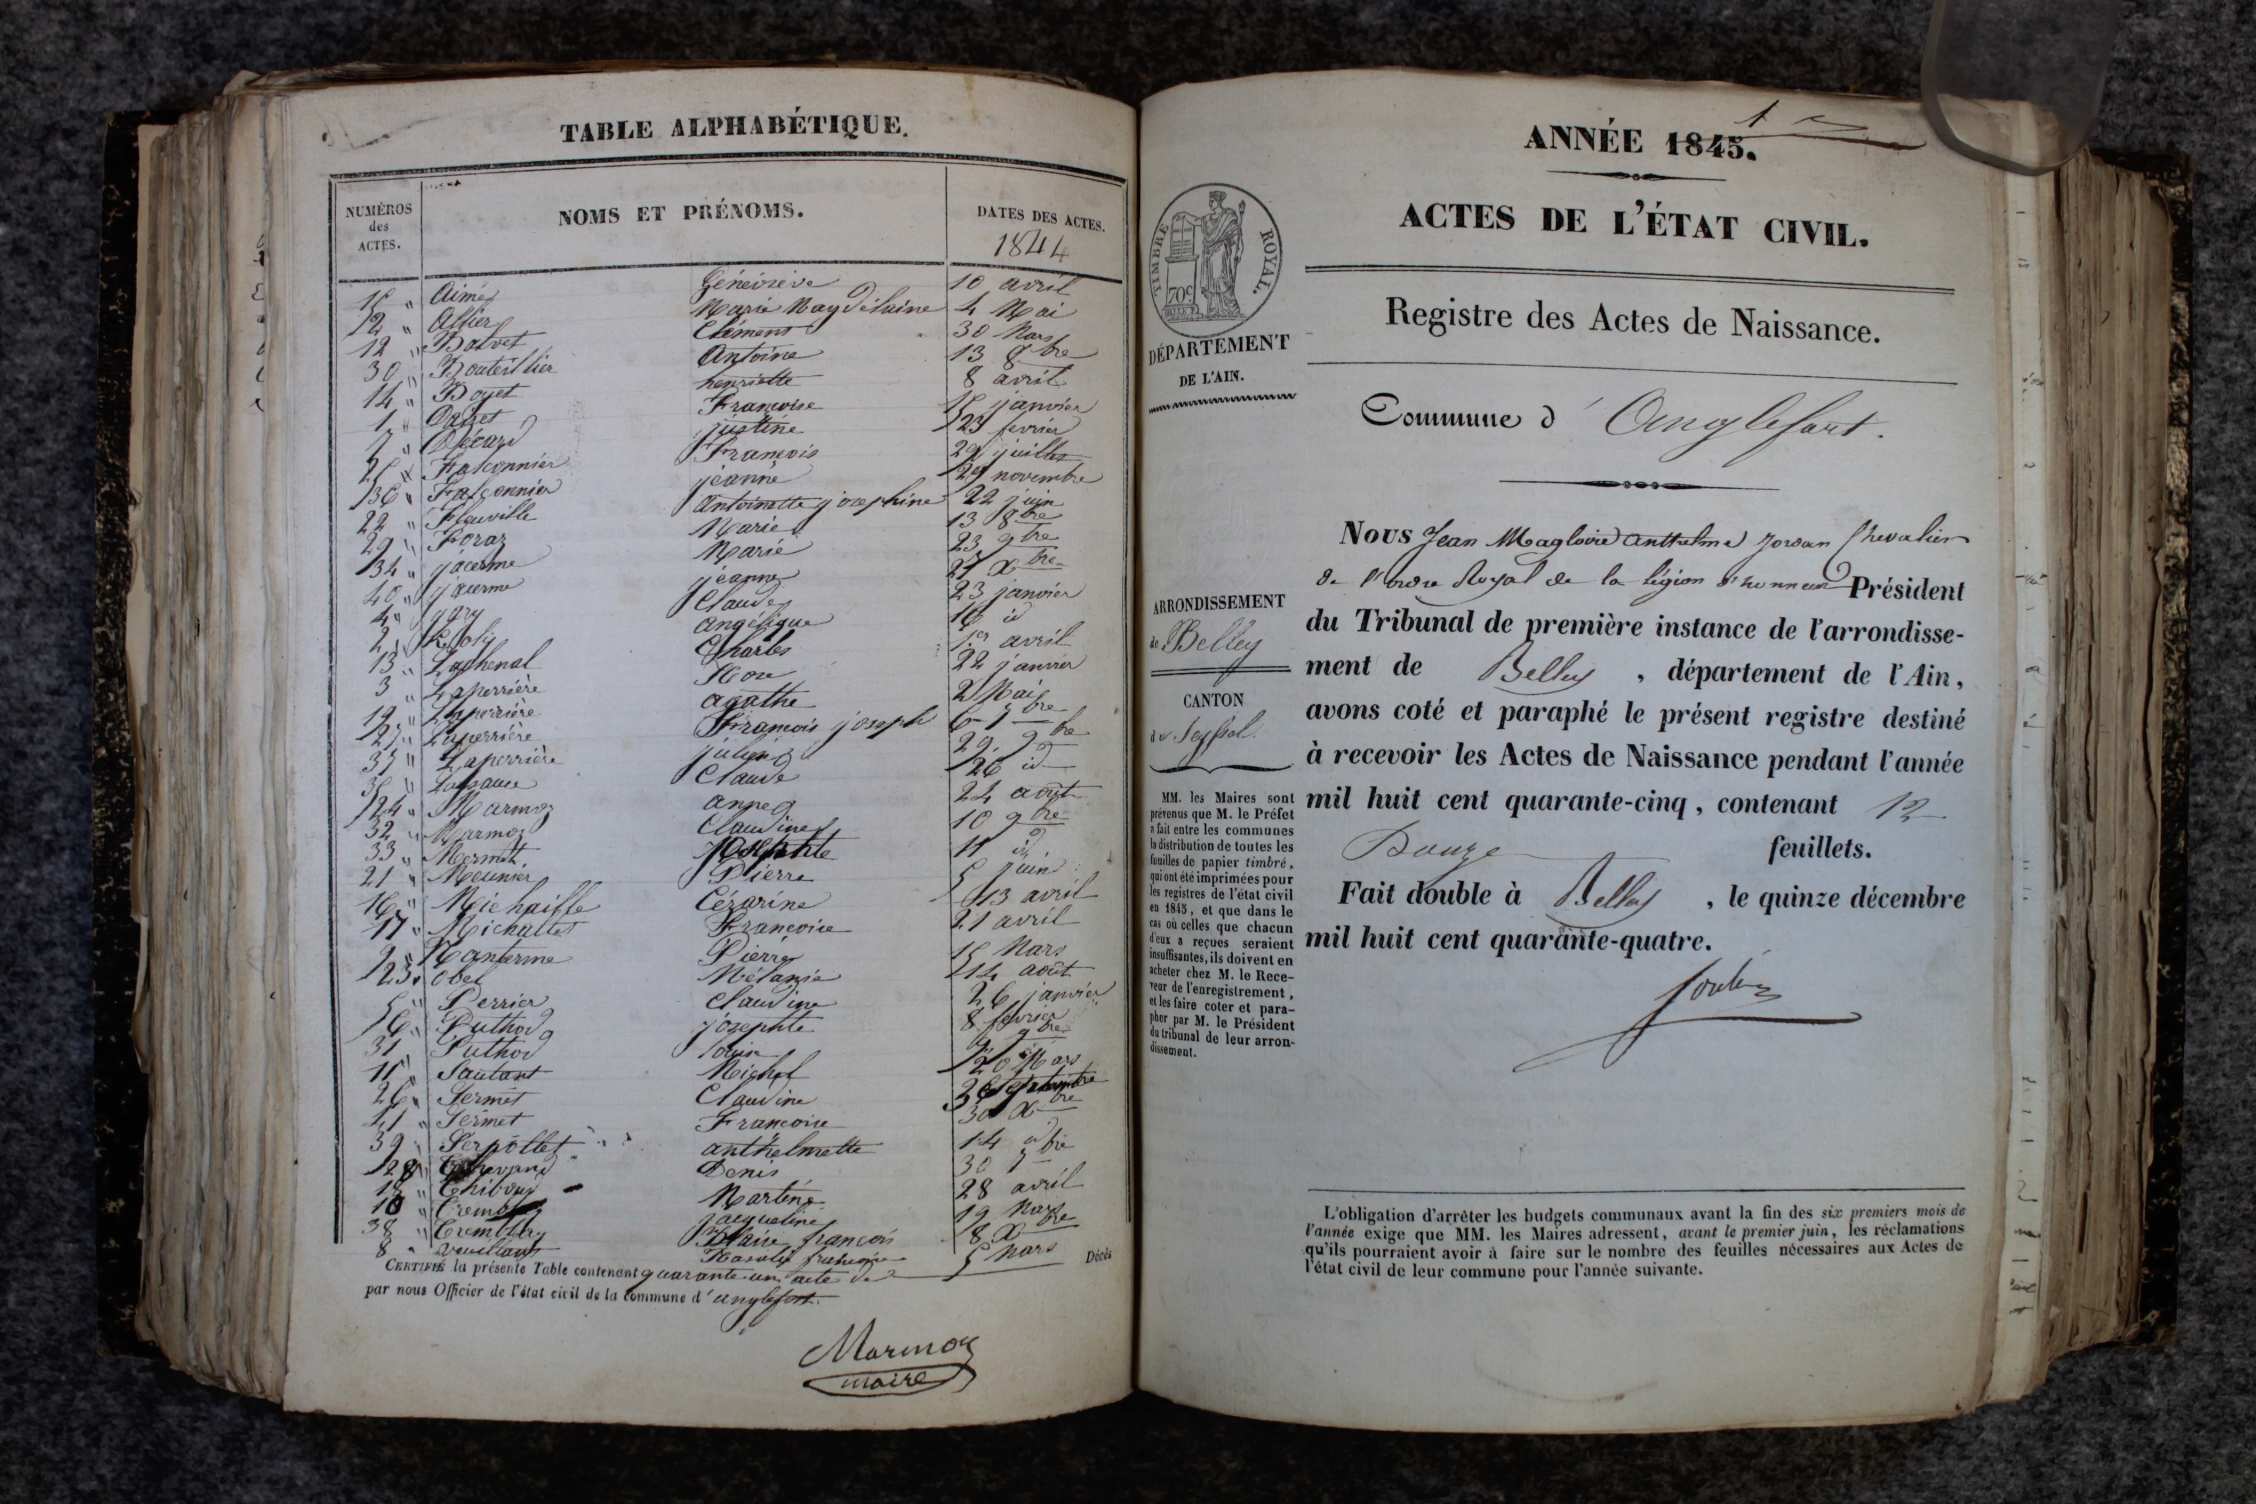 TABLE ALPHABÉTIQUE.
NUMÉROS des ACTES.
NOMS ET PRÉNOMS.
DATES DES ACTES.
1844
15 " Aimé Généviève 10 avril
" Allier Marie Magdelaine 4 Mai
12 " Balvet Clément 30 Mars
30 " Bouteillier Antoine 13 8bre
14 " Boyet henriette 8 avril
1 " Françoise 15 janvier
7 " justine 23 fevrier
" Falconnier François 29 juillet
36 " Falconnier jeanne 29 novembre
22 " Antoinette josephine 22 juin
29 " Foraz Marie 13 8bre
34 " jacerme Marie 23 9bre
40 " jacerme jeanne 21 Xbre
4 " Claude 23 janvier
2 " angélique 16 id
13 " Lachenal Charles 1er avril
3 " Laperrière Rose 22 janvier
19 " Laperrière agathe 2 Mai
27 " Laperrière François joseph 6 7bre
37 " Laperrière 29 9bre
" Claude 26 id
24 " Marmoz anne 24 août
32 " Marmoz Claudine 10 9bre
33 " Mermet Josephte 11 id
21 " Meunier Pierre 5 juin
16 " Michaille Cézarine 13 avril
17 " Michallet Françoise 21 avril
9 " Nanterme Pierre 15 Mars
23 " Obel Mélanie 14 août
5 " Perrier Claudine 26 janvier
6 " Puthod josephte 8 fevrier
31 " Puthod 9bre
11 " Sautant Michel 20 Mars
26 " Sermet Claudine septembre
41 " Sermet Françoise 30 Xbre
39 " Serpollet anthelmette 14 id
28 " Denis 30 7bre
18 " Martine 28 avril
10 " Jacqueline 19 Mars
38 " Trembley François 8 Xbre
8 " 5 Mars
CERTIFIÉ la présente Table contenant quarante un acte de
Décès
par nous Officier de l'état civil de la commune d'anglefort.
Marmoz
maire
1
ANNÉE 1845.
ACTES DE L'ÉTAT CIVIL.
TIMBRE ROYAL.
70c
DÉPARTEMENT
DE L'AIN.
Registre des Actes de Naissance.
Commune d'Anglefort.
Nous Jean Magloire Anthelme Jordan Chevalier
de l'ordre Royal de la légion d'honneur Président
du Tribunal de première instance de l'arrondisse-
ment de Belley, département de l'Ain,
avons coté et paraphé le présent registre destiné
à recevoir les Actes de Naissance pendant l'année
mil huit cent quarante-cinq, contenant 12
Douze feuillets.
Fait double à Belley, le quinze décembre
mil huit cent quarante-quatre.
ARRONDISSEMENT
de Belley
CANTON
de Seyssel.
MM. les Maires sont
prévenus que M. le Préfet
a fait entre les communes
la distribution de toutes les
feuilles de papier timbré,
qui ont été imprimées pour
les registres de l'état civil
en 1845, et que dans le
cas où celles que chacun
d'eux a reçues seraient
insuffisantes, ils doivent en
acheter chez M. le Rece-
veur de l'enregistrement,
et les faire coter et para-
pher par M. le Président
du tribunal de leur arron-
dissement.
L'obligation d'arrêter les budgets communaux avant la fin des six premiers mois de
l'année exige que MM. les Maires adressent, avant le premier juin, les réclamations
qu'ils pourraient avoir à faire sur le nombre des feuilles nécessaires aux Actes de
l'état civil de leur commune pour l'année suivante.